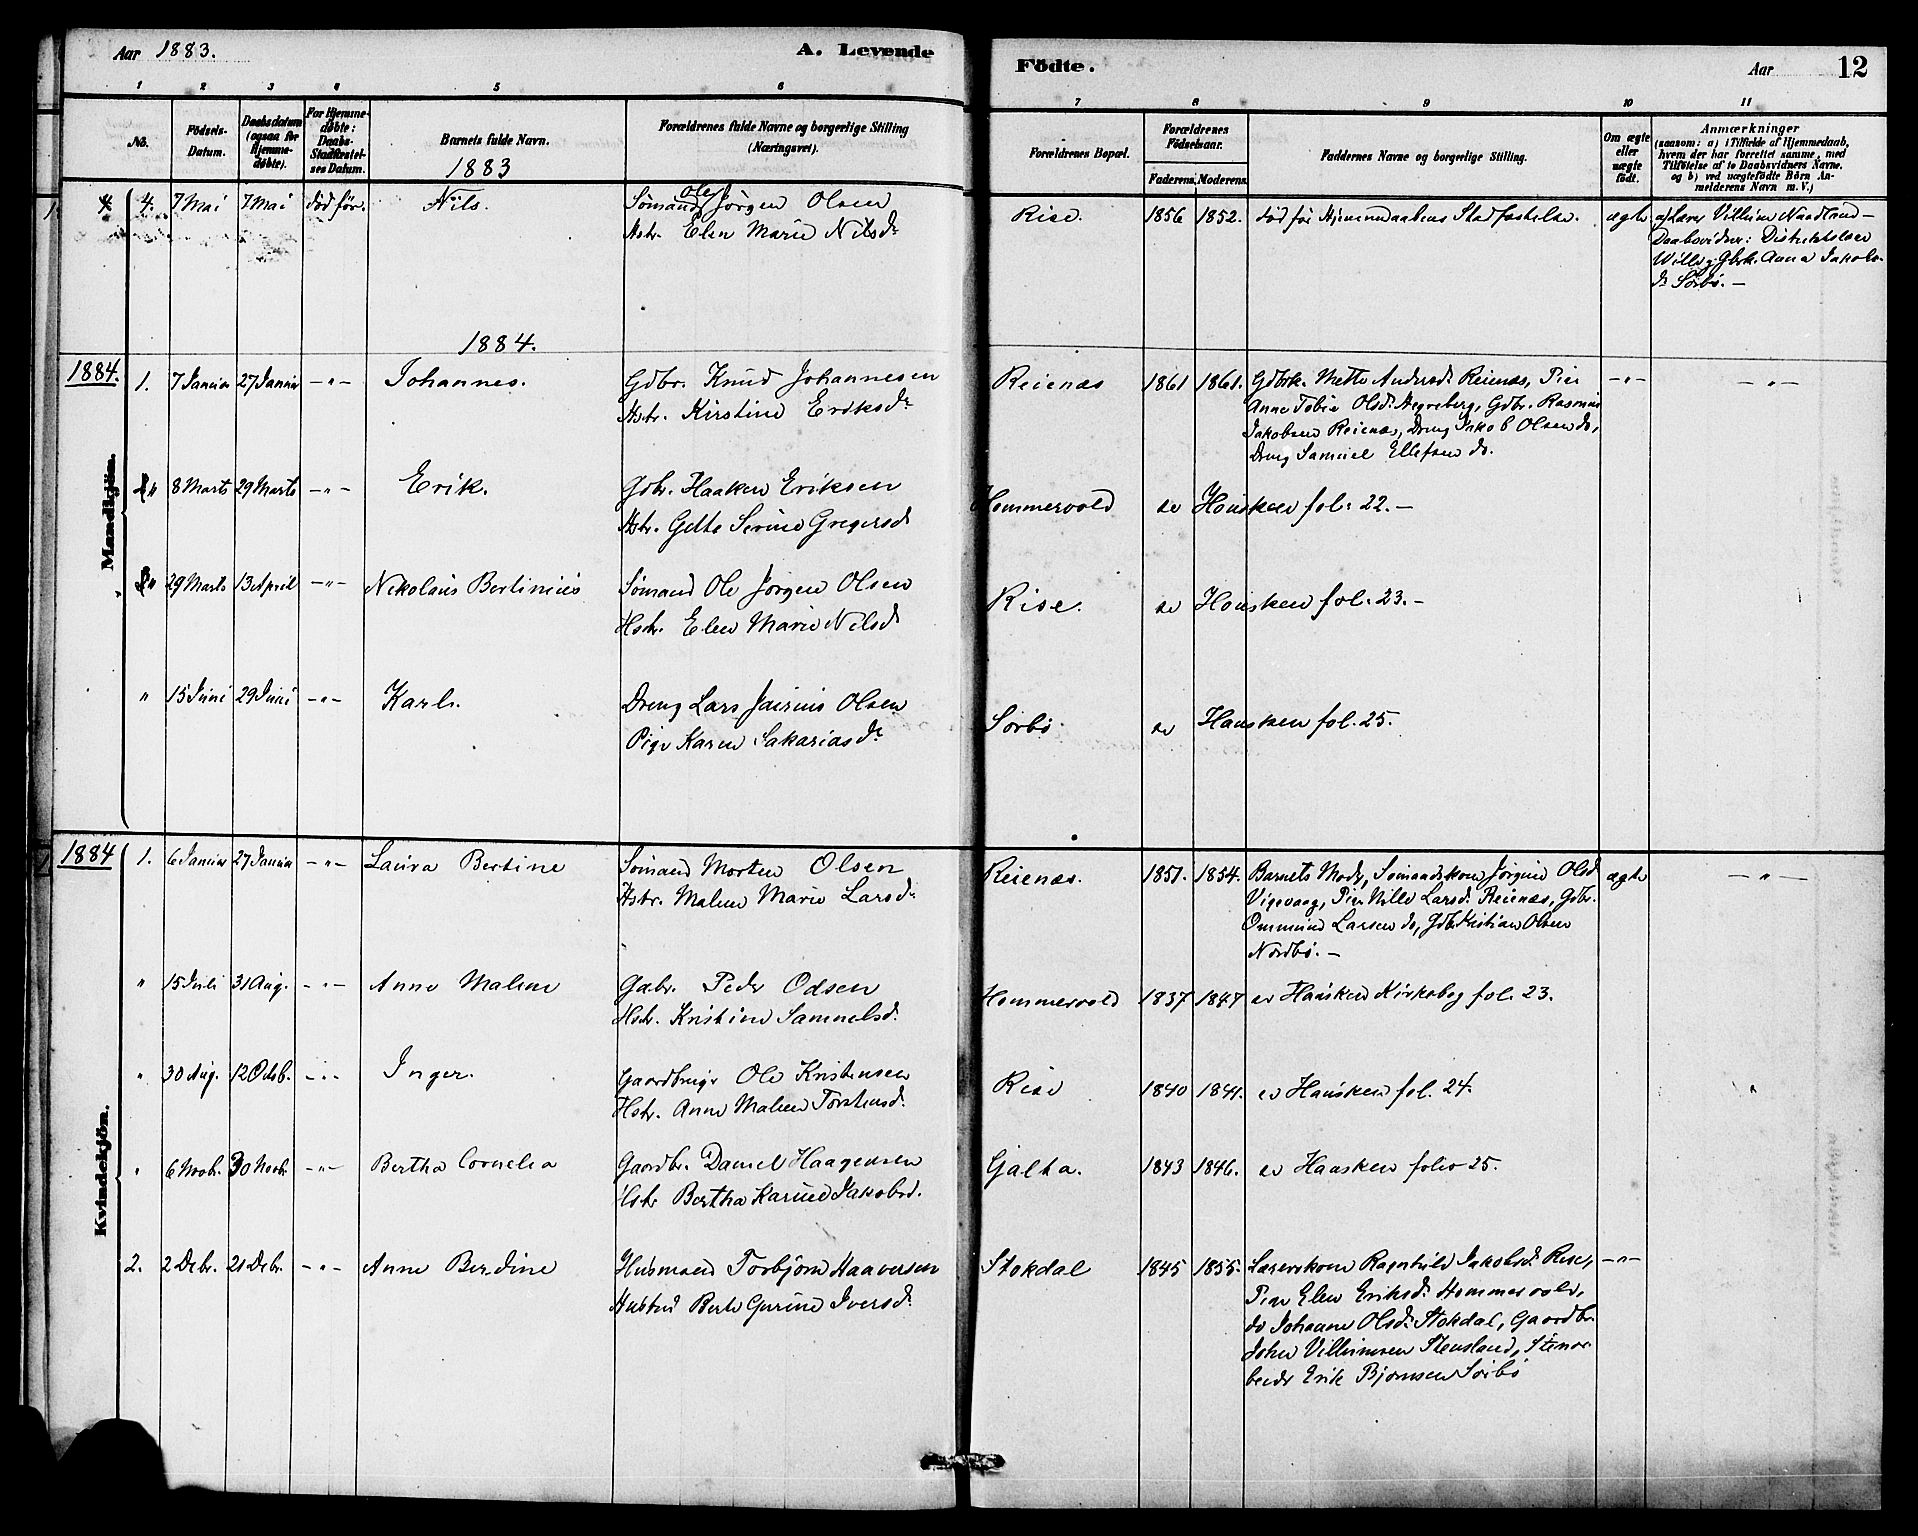 Aar 1883.
A. Levende
Födte.
Aar
12
1 2 3 4 5 6 7 8 9 10 11
No.
Födsels-
Datum.
Daabsdatum
(ogsaa for
Hjemme-
døbte).
For Hjemme-
døbte:
Daabs-
Stadfæstel-
ses Datum.
Barnets fulde Navn.
1883
Forældrenes fulde Navne og borgerlige Stilling
(Næringsvei).
Forældrenes Bopæl.
Forældrenes
Födselsaar.
Faderens. Moderens.
Faddernes Navne og borgerlige Stilling.
Om ægte
eller
uægte
født.
Anmærkninger
(saasom: a) i Tilfælde af Hjemmedaab,
hvem der har forrettet samme, med
Tilføielse af to Daabsvidners Navne.
og b) ved uægtefødte Børn An-
melderens Navn m. V.)
4. 7 Mai 7 Mai död för. Nils. Sömand Ole Jörgen Olsen Rise. 1856 1852. död för Hjemmedaabens Stadfæstelse. ægte
Hstr. Elen Marie Nilsdr
Daabsvidner:
Anna Jakobs-
dr Sörbö. —
1884.
Mandkjön.
1884. 1. 7 Januar 27 Januar —"— Johannes. Gdbr. Knud Johannesen Reienæs 1861 1861. Gdbrk. Mette Andersdr Reienæs, Pier —"— —"—
Hstr. Kirstine Eriksdr Anne Tobia Olsdr Hegreberg, Gdbr. Rasmus
Jakobsen Reienæs, Dreng Jakob Olsen do,
Dreng Samuel Ellefsen do.
" 8 Marts 29 Marts —"— Erik. Gdbr. Haaken Eriksen Hommervold se Hausken fol. 22. —
Hstr. Gitte Serine Gregersd
" 29 Marts 13 April —"— Nikolaus Bertinius Sömand Ole Jörgen Olsen Rise. se Hausken fol. 23. —
Hstr. Elen Marie Nilsd
" 15 Juni 29 Juni —"— Karl. Dreng Lars Jairius Olsen Sörbö se Hausken fol. 25.
Pige Karen Sakariasdr
Kvindekjön.
1884 1. 6 Januar 27 Januar —"— Laura Bertine Sömand Morten Olsen Reienæs. 1851. 1854. Barnets Moder, Sömandskone Jörgine Olsd ægte —"—
Hstr. Malene Marie Larsdr Vigevaag, Pige Larsdr Reienæs, Gdbr.
Ommund Larsen do, Gdbr Kristian Olsen
Nordbö. —
" 15 Juli 31 Aug. —"— Anne Malene Gabr. Peder Odsen Hommervold 1837 1847 se Hausken Kirkebog fol. 23.
Hstr. Kristine Samuelsd.
" 30 Aug. 12 Octb. —"— Inger. Gaardbruger Ole Kristensen Rise 1840 1841. se Hausken fol. 24. "
Hstr. Anne Malene Torstensd.
" 6 Novb. 30 Novb. —"— Bertha Cornelia Gaardbr. Daniel Haagensen Galta. 1843 1846. se Hausken folio 25.
Hstr Bertha Karine Jakobsd.
2. 2 Debr. 21 Debr. —"— Anne Berdine Husmand Torbjörn Haaversen Stokdal 1845 1855. Lærerskone Ragnhild Jakobsdr Rise, —"—
Hustru Berte Gurine Iversdr Pige Elen Eriksdr Hommervold,
do Johanne Olsdr Stokdal, Gaardbr.
John Villumsen Stensland, Stenar-
beider Erik Bjørnsen Sörbö